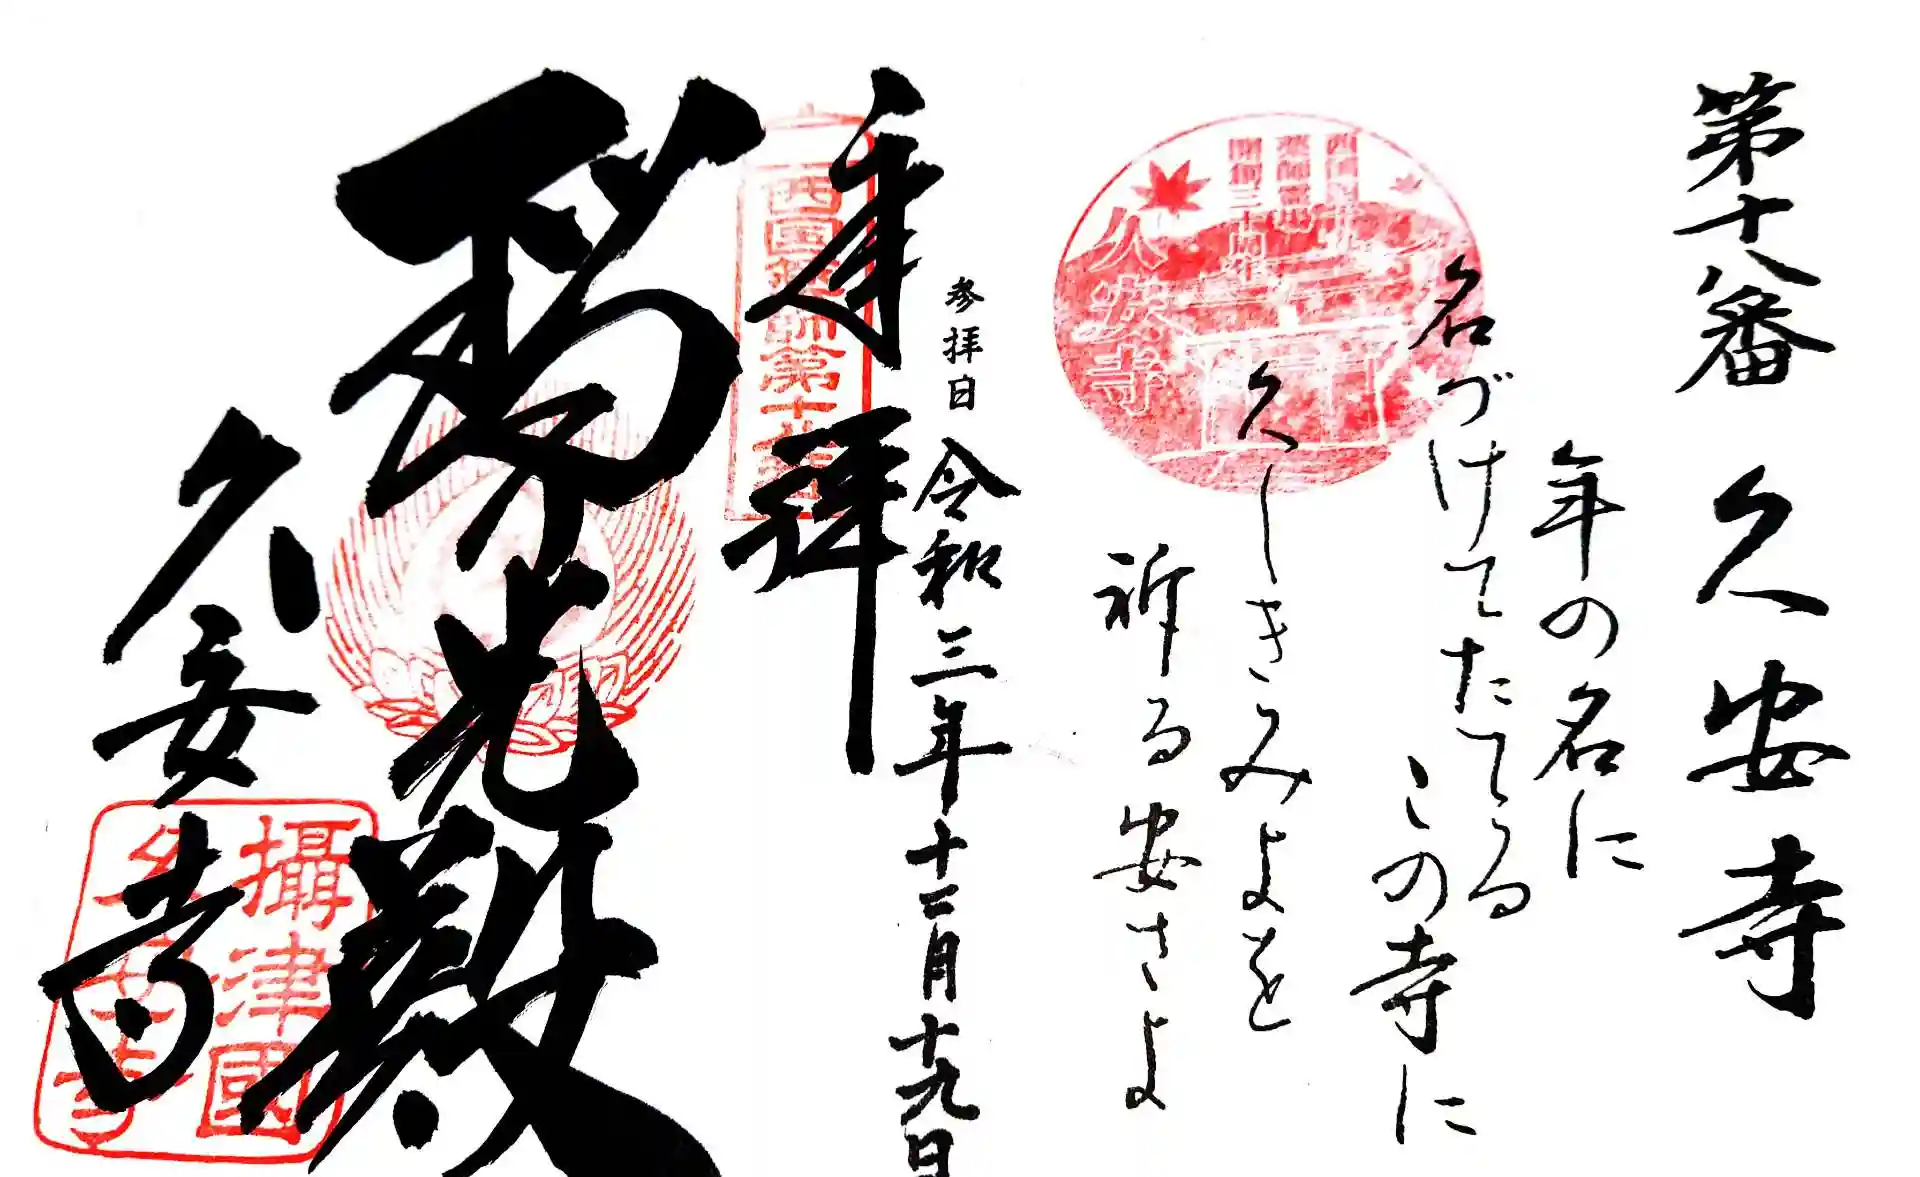 第十八番 久安寺
年の名に
名づけてたてる
この寺に
久しきみよを
祈る安さよ
薬師霊場
開創三十周年
久安寺
参拝日 令和三年十二月十九日
奉拝
西国薬師第十八番
光殿
久安寺
攝津國
久安寺